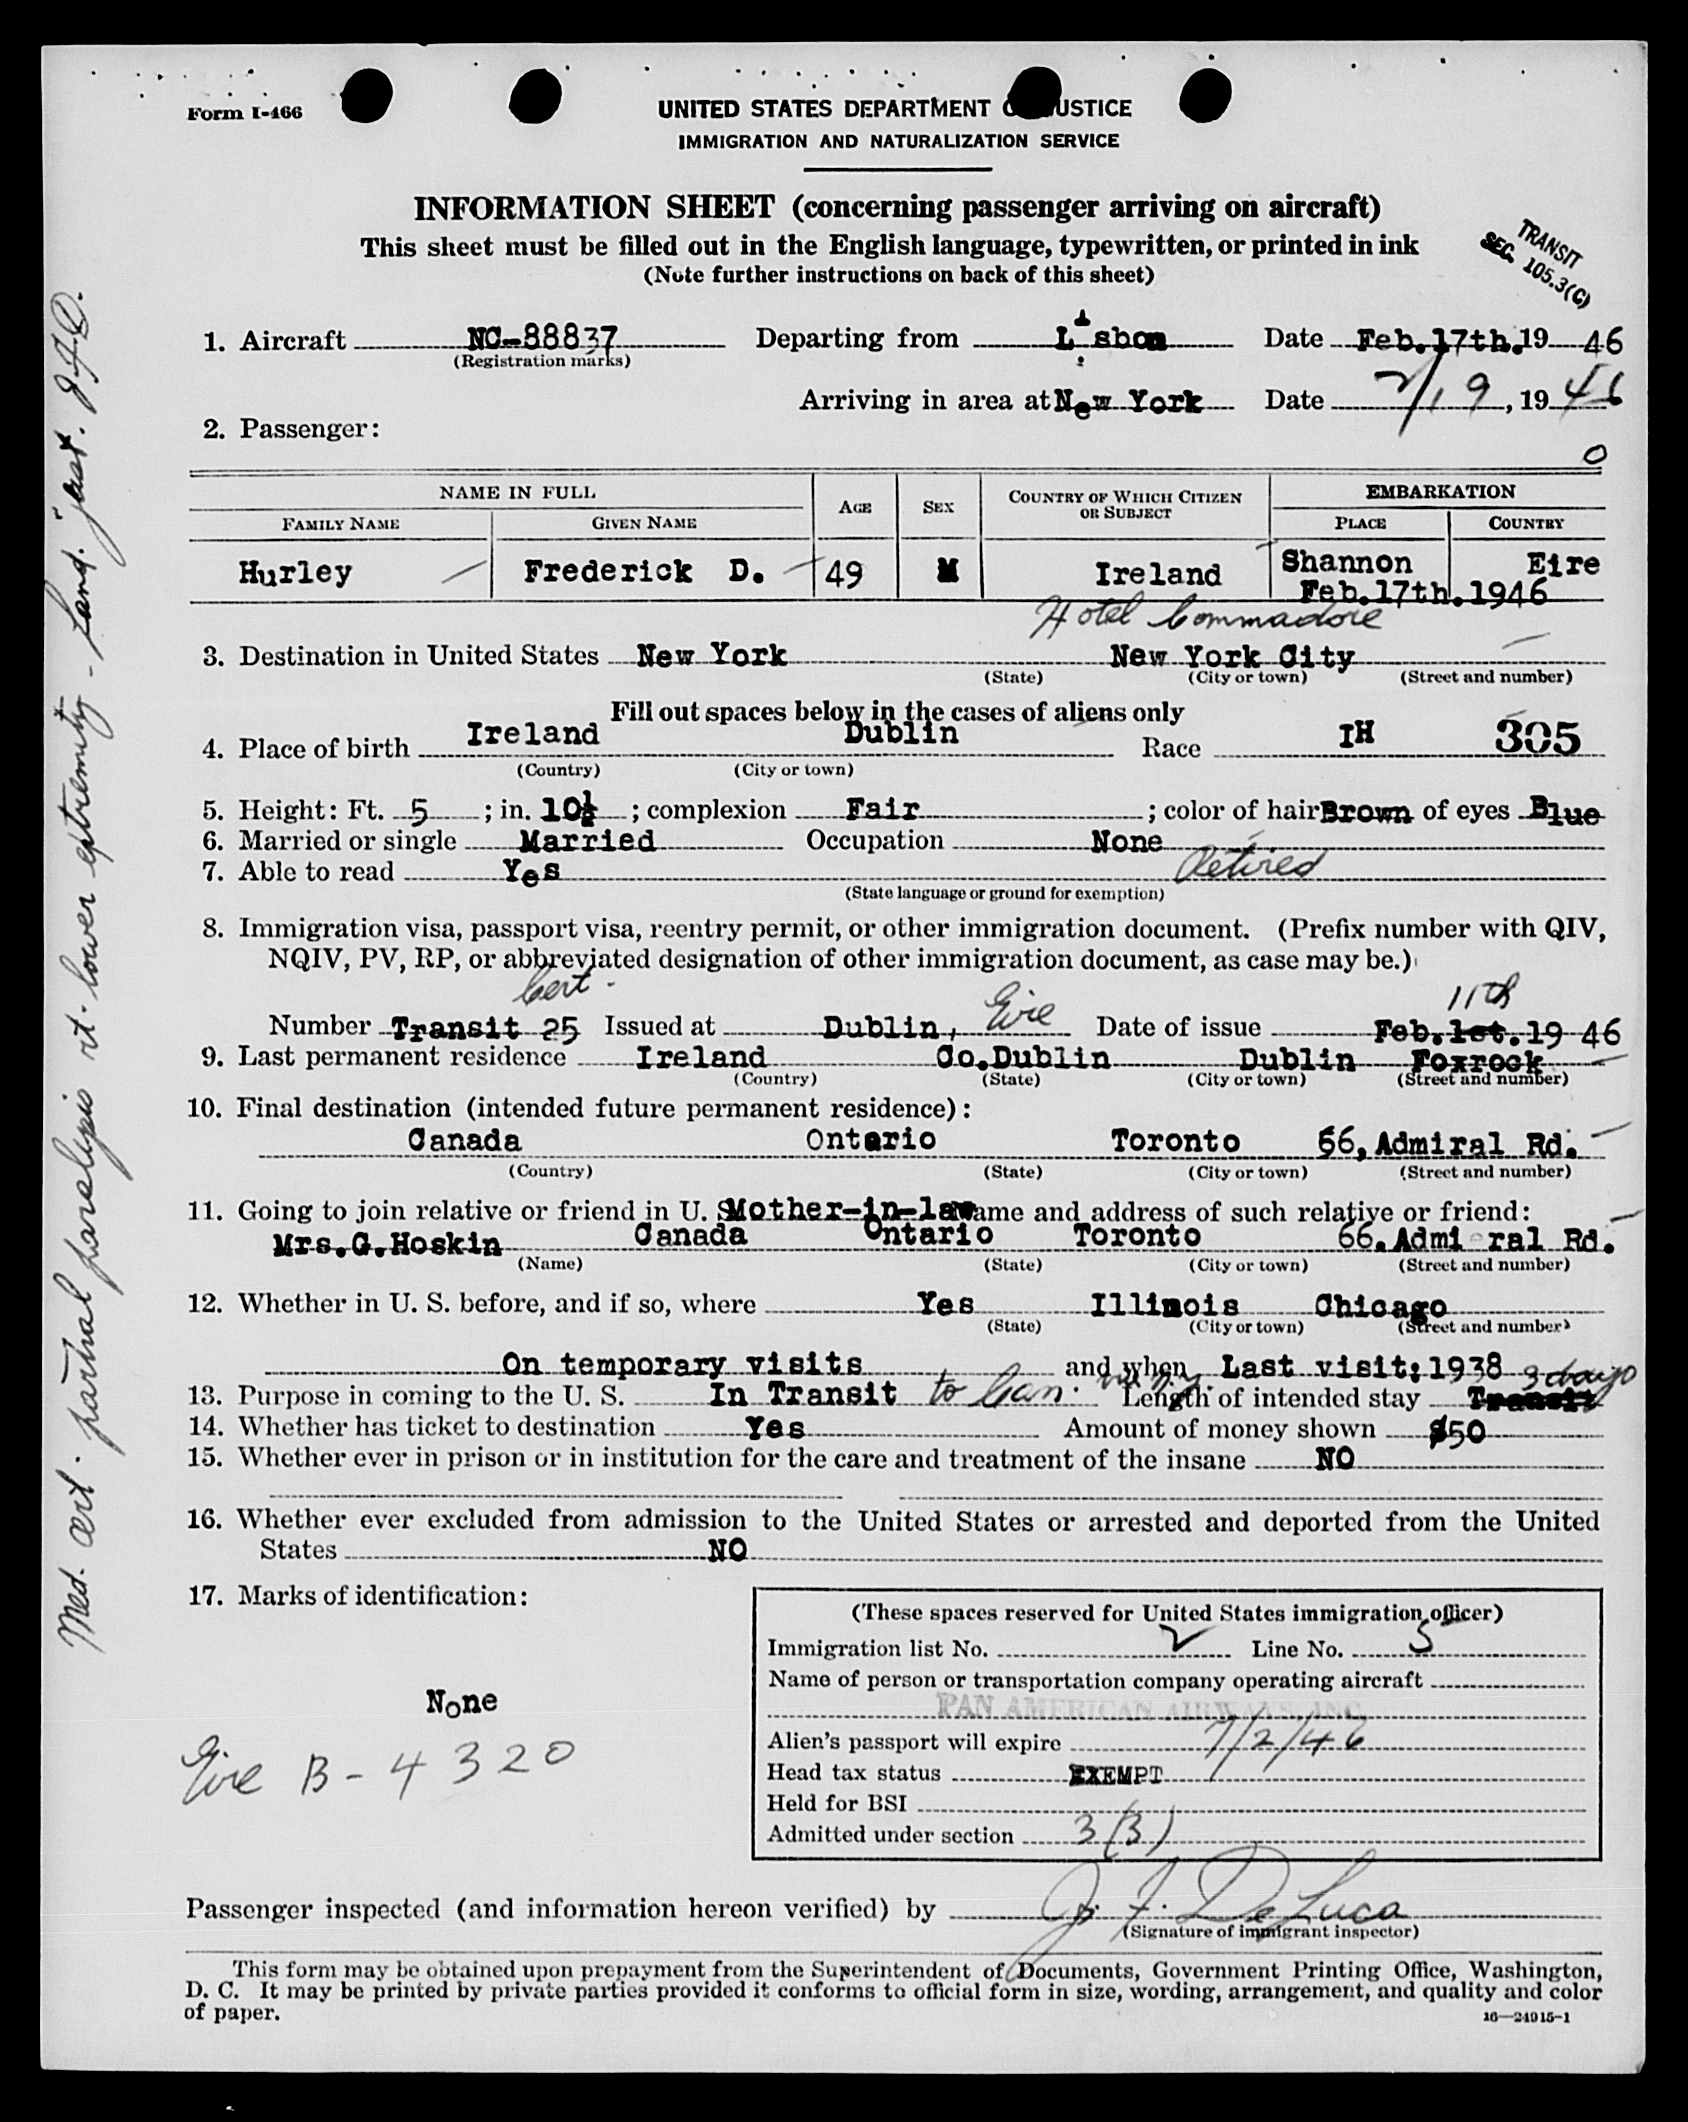 Form I-466
UNITED STATES DEPARTMENT O JUSTICE
IMMIGRATION AND NATURALIZATION SERVICE
INFORMATION SHEET (concerning passenger arriving on aircraft)
This sheet must be filled out in the English language, typewritten, or printed in ink
(Note further instructions on back of this sheet)
TRANSIT
SEC. 105.3(C)
1. Aircraft NC-88837 Departing from Lisbon Date Feb.17th.19 46
(Registration marks)
Arriving in area at New York Date 2/19, 19 46
2. Passenger:
0
NAME IN FULL AGE SEX COUNTRY OF WHICH CITIZEN OR SUBJECT EMBARKATION
FAMILY NAME GIVEN NAME PLACE COUNTRY
Hurley Frederick D. 49 M Ireland Shannon Eire
Feb.17th.1946
Hotel Commadore
3. Destination in United States New York New York City
(State) (City or town) (Street and number)
Fill out spaces below in the cases of aliens only
4. Place of birth Ireland Dublin Race IH 305
(Country) (City or town)
5. Height: Ft. 5 ; in. 10½ ; complexion Fair ; color of hair Brown of eyes Blue
6. Married or single Married Occupation None
7. Able to read Yes Retired
(State language or ground for exemption)
8. Immigration visa, passport visa, reentry permit, or other immigration document. (Prefix number with QIV,
NQIV, PV, RP, or abbreviated designation of other immigration document, as case may be.)
Cert. 11th
Number Transit 25 Issued at Dublin, Eire Date of issue Feb.1st.19 46
9. Last permanent residence Ireland Co.Dublin Dublin Foxrock
(Country) (State) (City or town) (Street and number)
10. Final destination (intended future permanent residence):
Canada Ontario Toronto 66, Admiral Rd.
(Country) (State) (City or town) (Street and number)
11. Going to join relative or friend in U. S. Mother-in-law Name and address of such relative or friend:
Mrs.G.Hoskin Canada Ontario Toronto 66.Admi ral Rd.
(Name) (State) (City or town) (Street and number)
12. Whether in U. S. before, and if so, where Yes Illinois Chicago
(State) (City or town) (Street and number)
On temporary visits and when Last visit:1938
13. Purpose in coming to the U. S. In Transit to Can. via N.Y. Length of intended stay Transit 3 days
14. Whether has ticket to destination Yes Amount of money shown $50
15. Whether ever in prison or in institution for the care and treatment of the insane NO
16. Whether ever excluded from admission to the United States or arrested and deported from the United
States NO
17. Marks of identification:
None
Eire B-4320
(These spaces reserved for United States immigration officer)
Immigration list No. 2 Line No. 5
Name of person or transportation company operating aircraft
PAN AMERICAN AIRWAYS, INC.
Alien's passport will expire 7/2/46
Head tax status EXEMPT
Held for BSI
Admitted under section 3(3)
Passenger inspected (and information hereon verified) by J. F. DeLuca
(Signature of immigrant inspector)
This form may be obtained upon prepayment from the Superintendent of Documents, Government Printing Office, Washington,
D. C. It may be printed by private parties provided it conforms to official form in size, wording, arrangement, and quality and color
of paper.
16—24915-1
Med. cert. partial paralysis rt. lower extremity - Land. just. J.F.D.